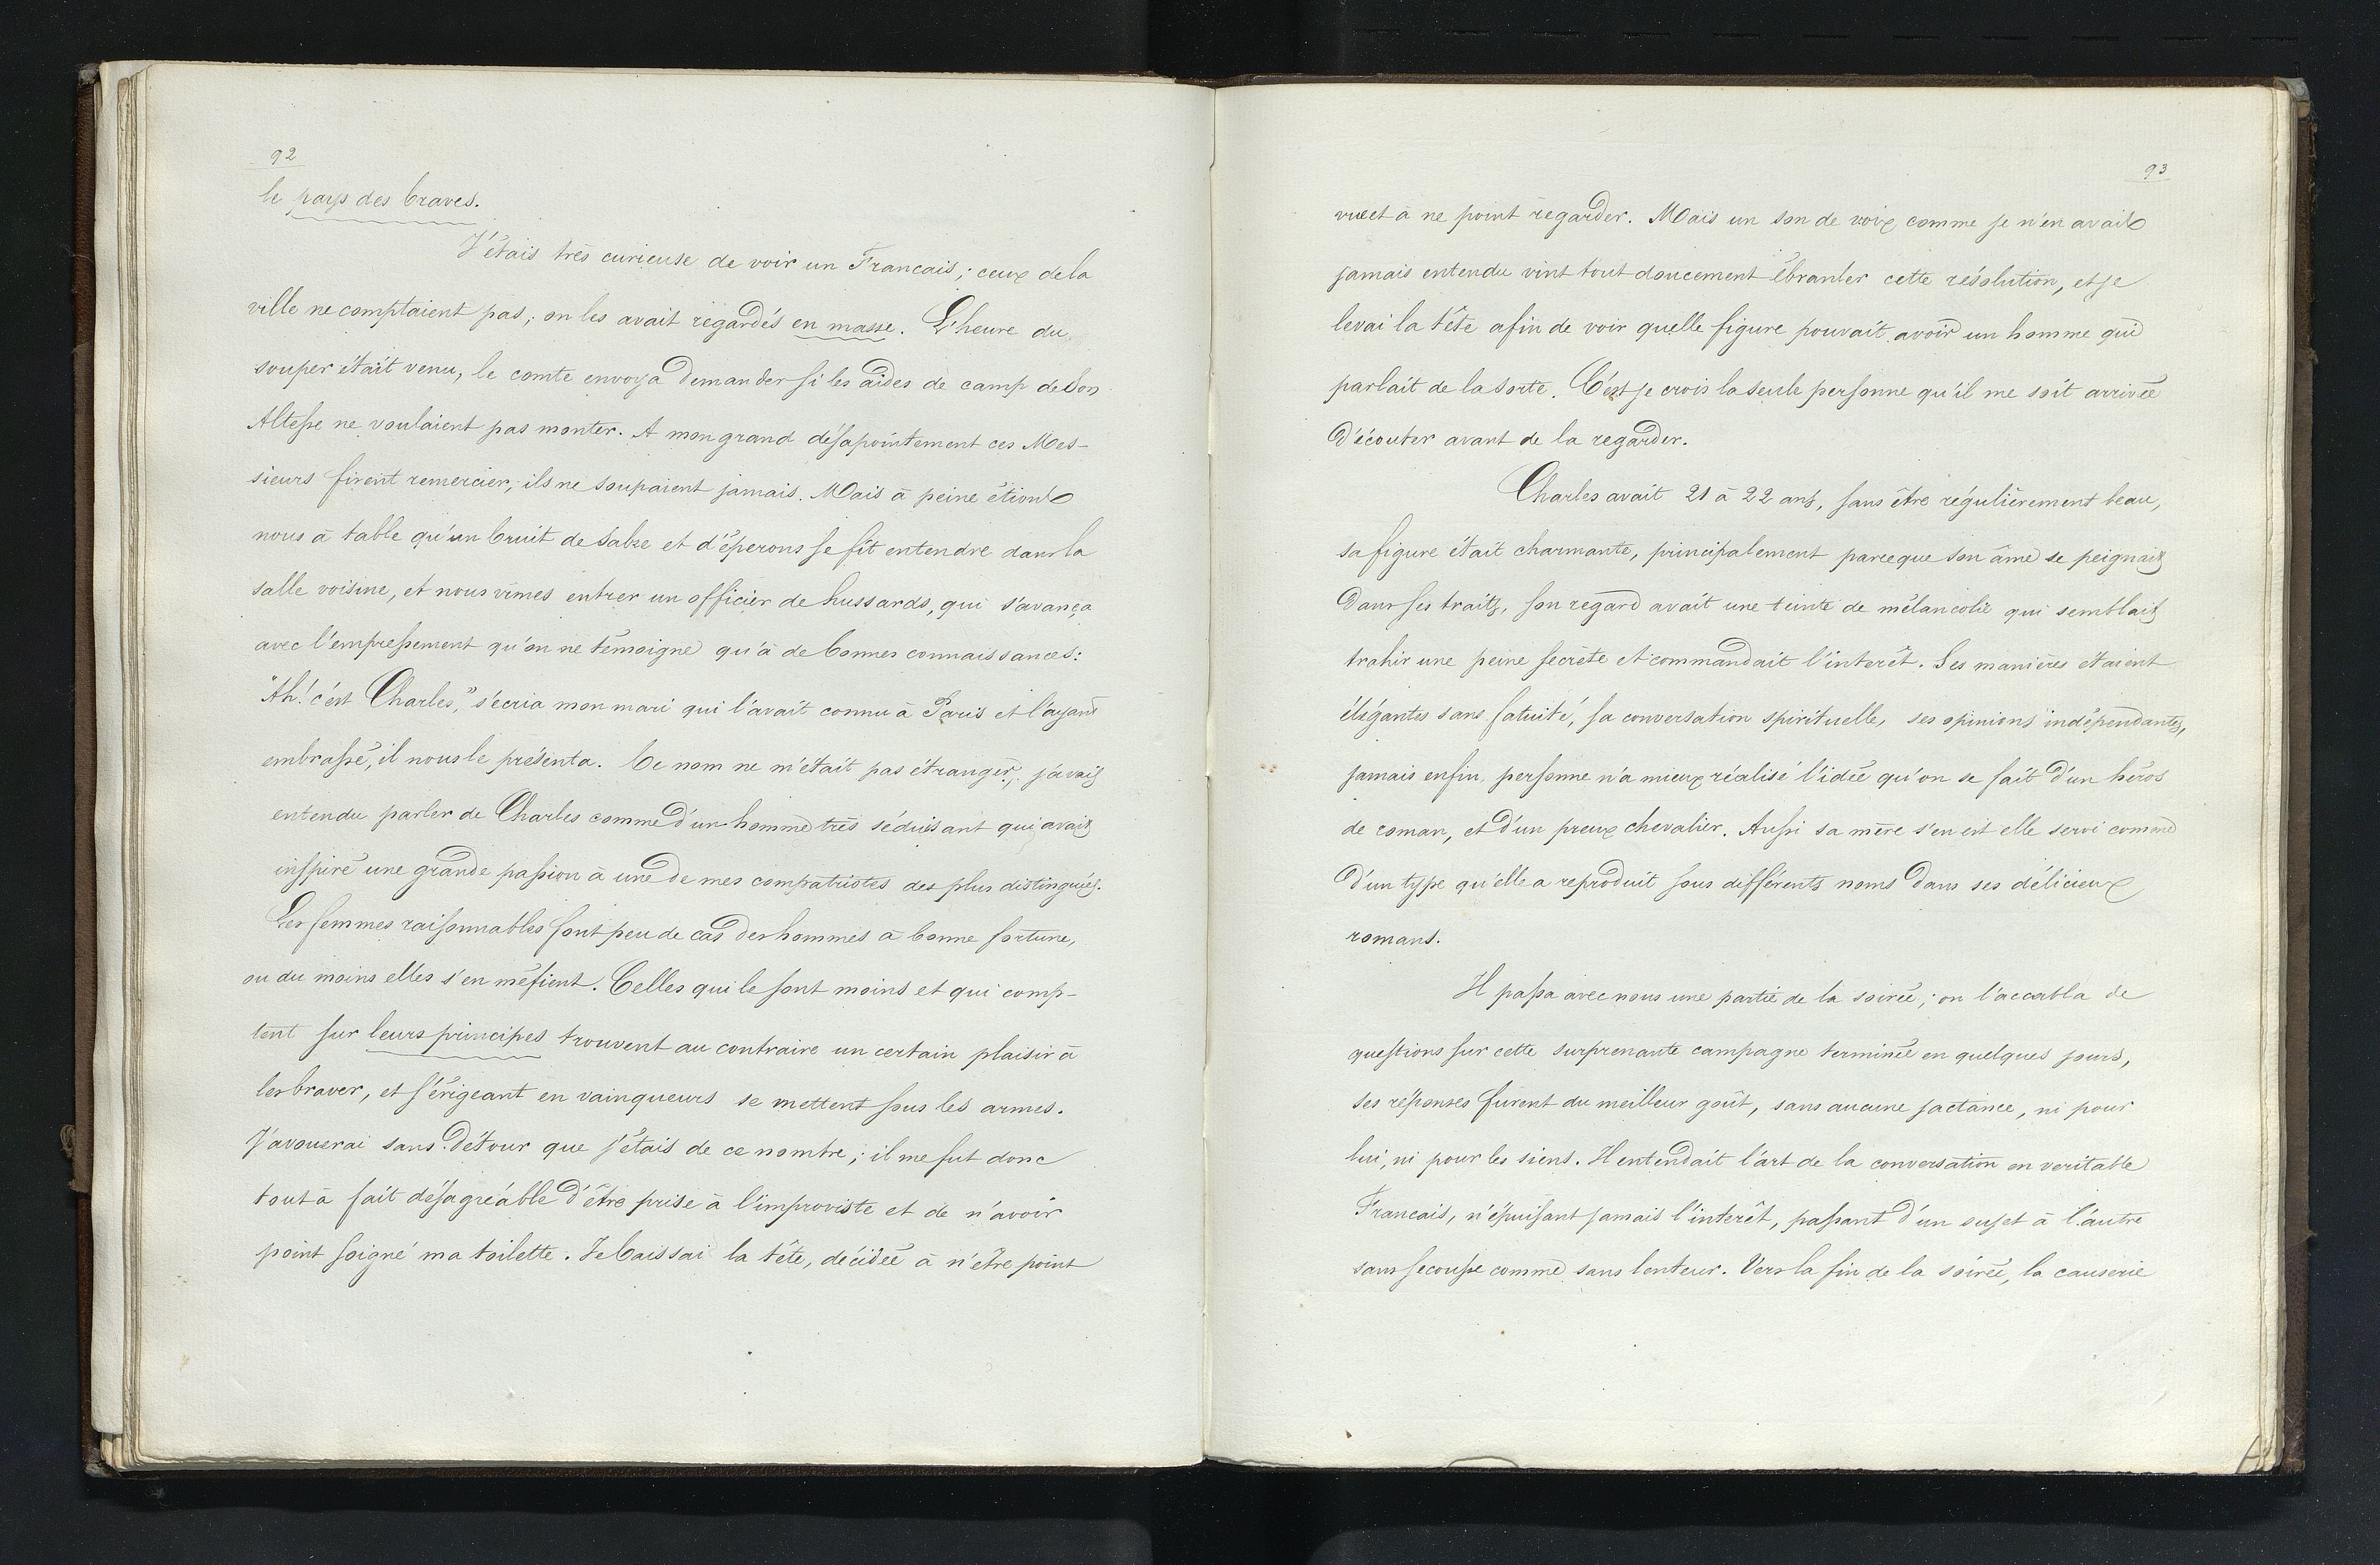 92
le pays des braves.
J'étais très curieuse de voir un Francais; ceux de la
ville ne comptaient pas; on les avait regardés en masse. L'heure du
souper était venu, le comte envoya demander si les aides de camp de Son
Altesse ne voulaient pas monter. A mon grand désapointement ces Mes-
sieurs firent remercier; ils ne soupaient jamais. Mais à peine étions
nous à table qu'un bruit de sabre et d'éperons se fit entendre dans la
salle voisine, et nous vîmes entrer un officier de hussards, qui s'avança
avec l'empressement qu'on ne témoigne qu'à de bonnes connaissances:
"Ah! c'est Charles," s'écria mon mari qui l'avait connu à Paris et l'ayant
embrassé, il nous le présenta. Ce nom ne m'était pas étranger; j'avais
entendu parler de Charles comme d'un homme très séduisant qui avait
inspiré une grande passion à une de mes compatriotes des plus distinguées.
Les femmes raisonnables font peu de cas des hommes à bonne fortune,
ou du moins elles s'en méfient. Celles qui le sont moins et qui comp-
tent sur leurs principes trouvent au contraire un certain plaisir à
les braver, et s'érigeant en vainqueurs se mettent sous les armes.
J'avouerai sans détour que j'étais de ce nombre; il me fut donc
tout à fait désagréable d'être prise à l'improviste et de n'avoir
point soigné ma toilette. Je baissai la tête, décidée à n'être point
93
vue et à ne point regarder. Mais un son de voix comme je n'en avais
jamais entendu vint tout doucement ébranler cette résolution, et je
levai la tête afin de voir quelle figure pouvait avoir un homme qui
parlait de la sorte. C'est je crois la seule personne qu'il me soit arrivée
d'écouter avant de la regarder.
Charles avait 21 à 22 ans, sans être régulièrement beau,
sa figure était charmante, principalement parceque son âme se peignait
dans ses traits, son regard avait une teinte de mélancolie qui semblait
trahir une peine secrète et commandait l'interêt. Ses manières étaient
élégantes sans fatuité, sa conversation spirituelle, ses opinions indépendantes,
jamais enfin personne n'a mieux réalisé l'idée qu'on se fait d'un héros
de roman, et d'un preux chevalier. Aussi sa mère s'en est elle servi comme
d'un type qu'elle a reproduit sous différents noms dans ses délicieux
romans.
Il passa avec nous une partie de la soirée; on l'accabla de
questions sur cette surprenante campagne terminée en quelques jours,
ses réponses furent du meilleur goût, sans aucune jactance, ni pour
lui, ni pour les siens. Il entendait l'art de la conversation en veritable
Francais, n'épuisant jamais l'interêt, passant d'un sujet à l'autre
sans secousse comme sans lenteur. Vers la fin de la soirée, la causerie